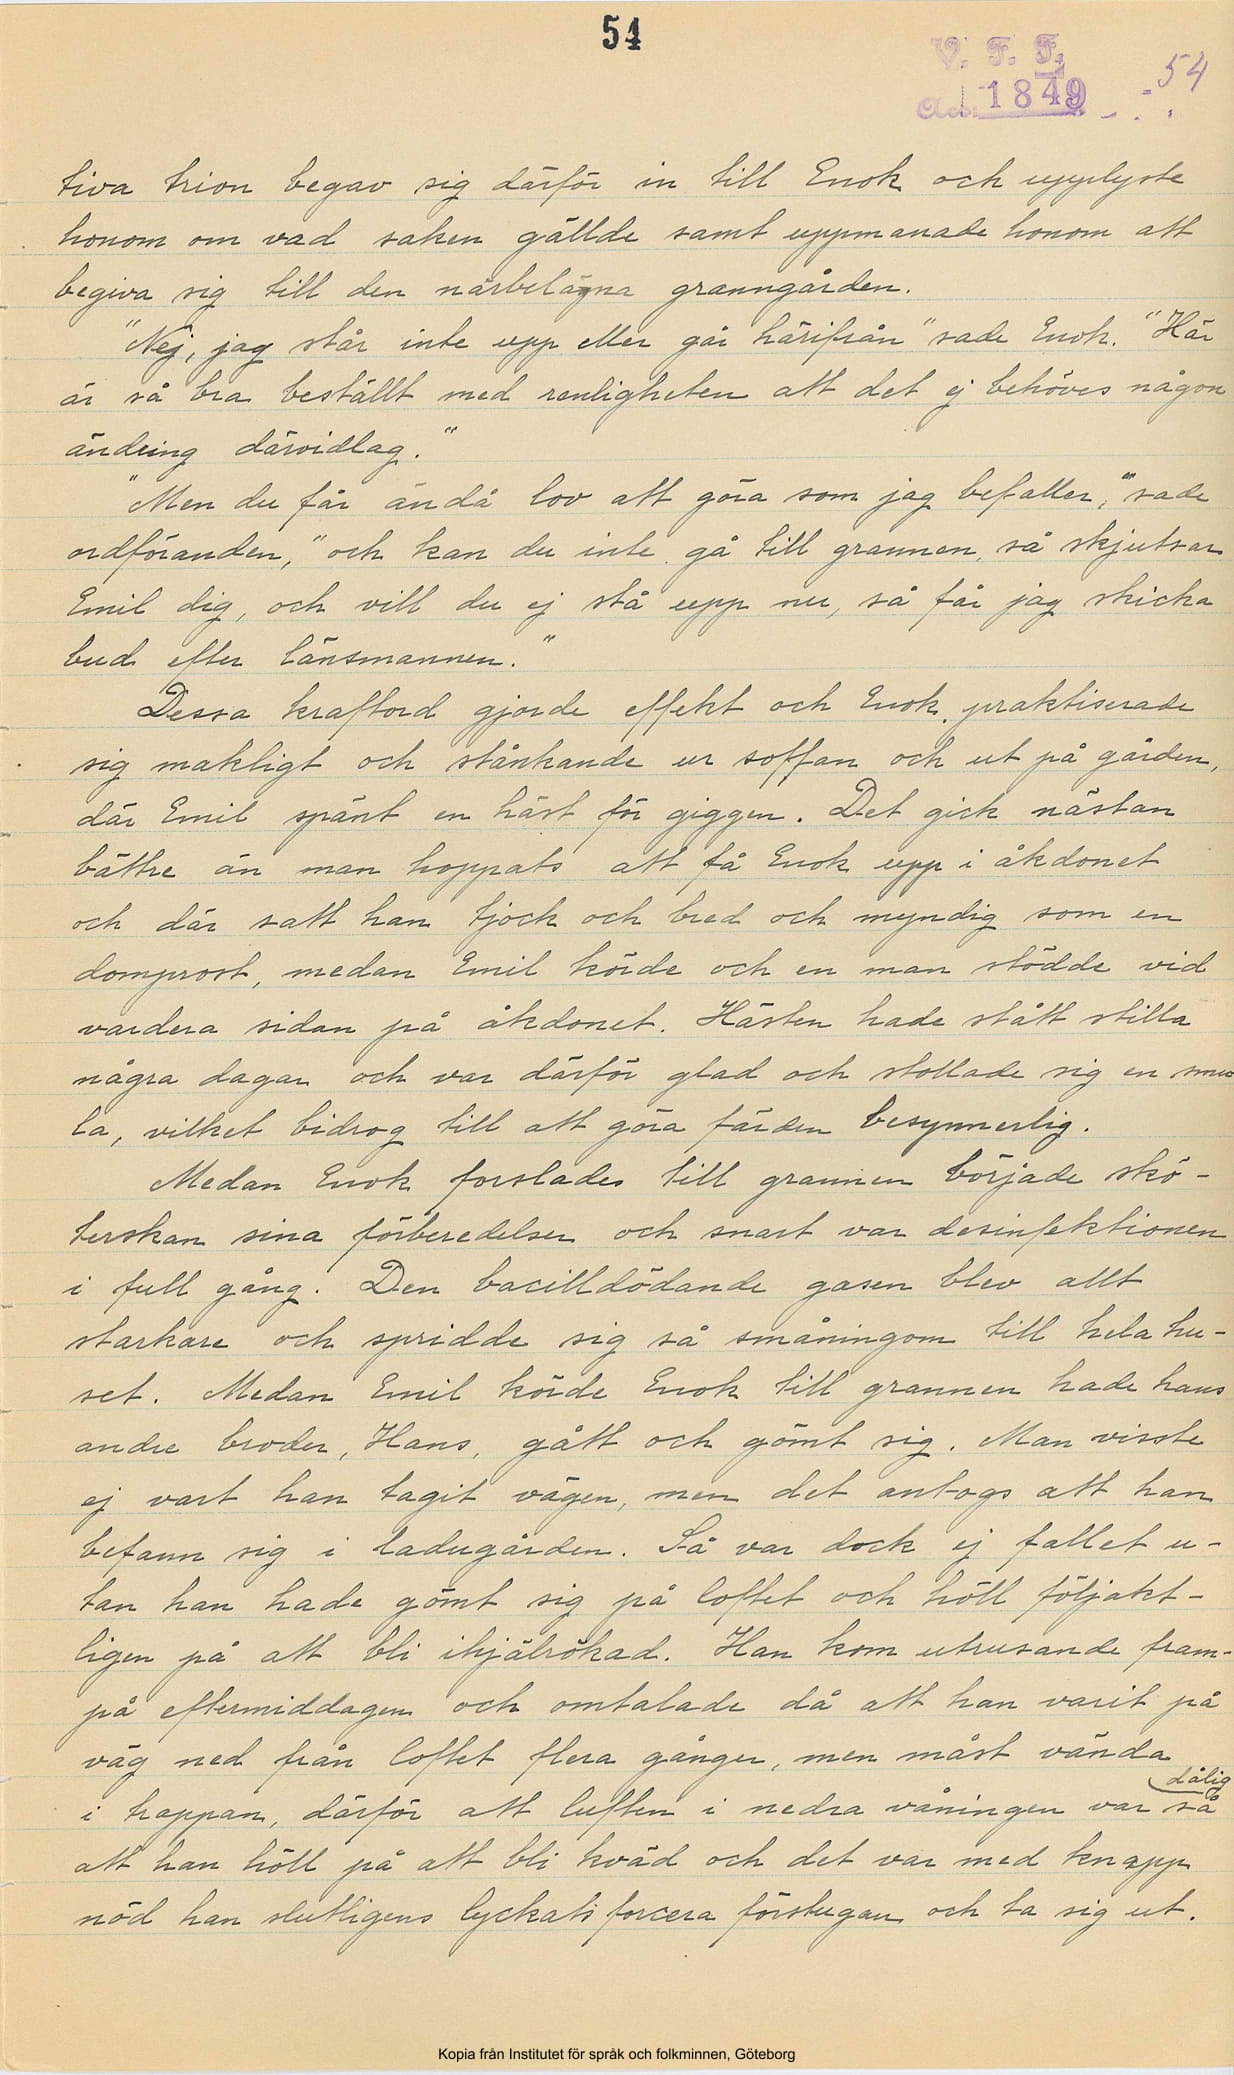 54
V. F. F.
Acc. 1849 54
tiva trion begav sig därför in till Enok och upplyste
honom om vad saken gällde samt uppmanade honom att
begiva sig till den närbelägna granngården.
"Nej, jag står inte upp eller går härifrån" sade Enok. "Här
är så bra beställt med renligheten att det ej behöves någon
ändring därvidlag."
"Men du får ändå lov att göra som jag befaller," sade
ordföranden, "och kan du inte gå till grannen, så skjutsar
Emil dig, och vill du ej stå upp nu, så får jag skicka
bud efter länsmannen."
Dessa kraftord gjorde effekt och Enok praktiserade
sig makligt och stånkande ur soffan och ut på gården,
där Emil spänt en häst för giggen. Det gick nästan
bättre än man hoppats att få Enok upp i åkdonet
och där satt han tjock och bred och myndig som en
domprost, medan Emil körde och en man stödde vid
vardera sidan på åkdonet. Hästen hade stått stilla
några dagar och var därför glad och stollade sig en smu
la, vilket bidrog till att göra färden besynnerlig.
Medan Enok forslades till grannen började skö-
terskan sina förberedelser och snart var desinfektionen
i full gång. Den bacilldödande gasen blev allt
starkare och spridde sig så småningom till hela hu-
set. Medan Emil körde Enok till grannen hade hans
andre broder, Hans, gått och gömt sig. Man visste
ej vart han tagit vägen, men det antogs att han
befann sig i ladugården. Så var dock ej fallet u-
tan han hade gömt sig på loftet och höll följakt-
ligen på att bli ihjälrökad. Han kom utrusande fram-
på eftermiddagen och omtalade då att han varit på
väg ned från loftet flera gånger, men måst vända
i trappan, därför att luften i nedra våningen var så dålig
att han höll på att bli kväd och det var med knapp
nöd han slutligens lyckats forcera förstugan och ta sig ut.
Kopia från Institutet för språk och folkminnen, Göteborg